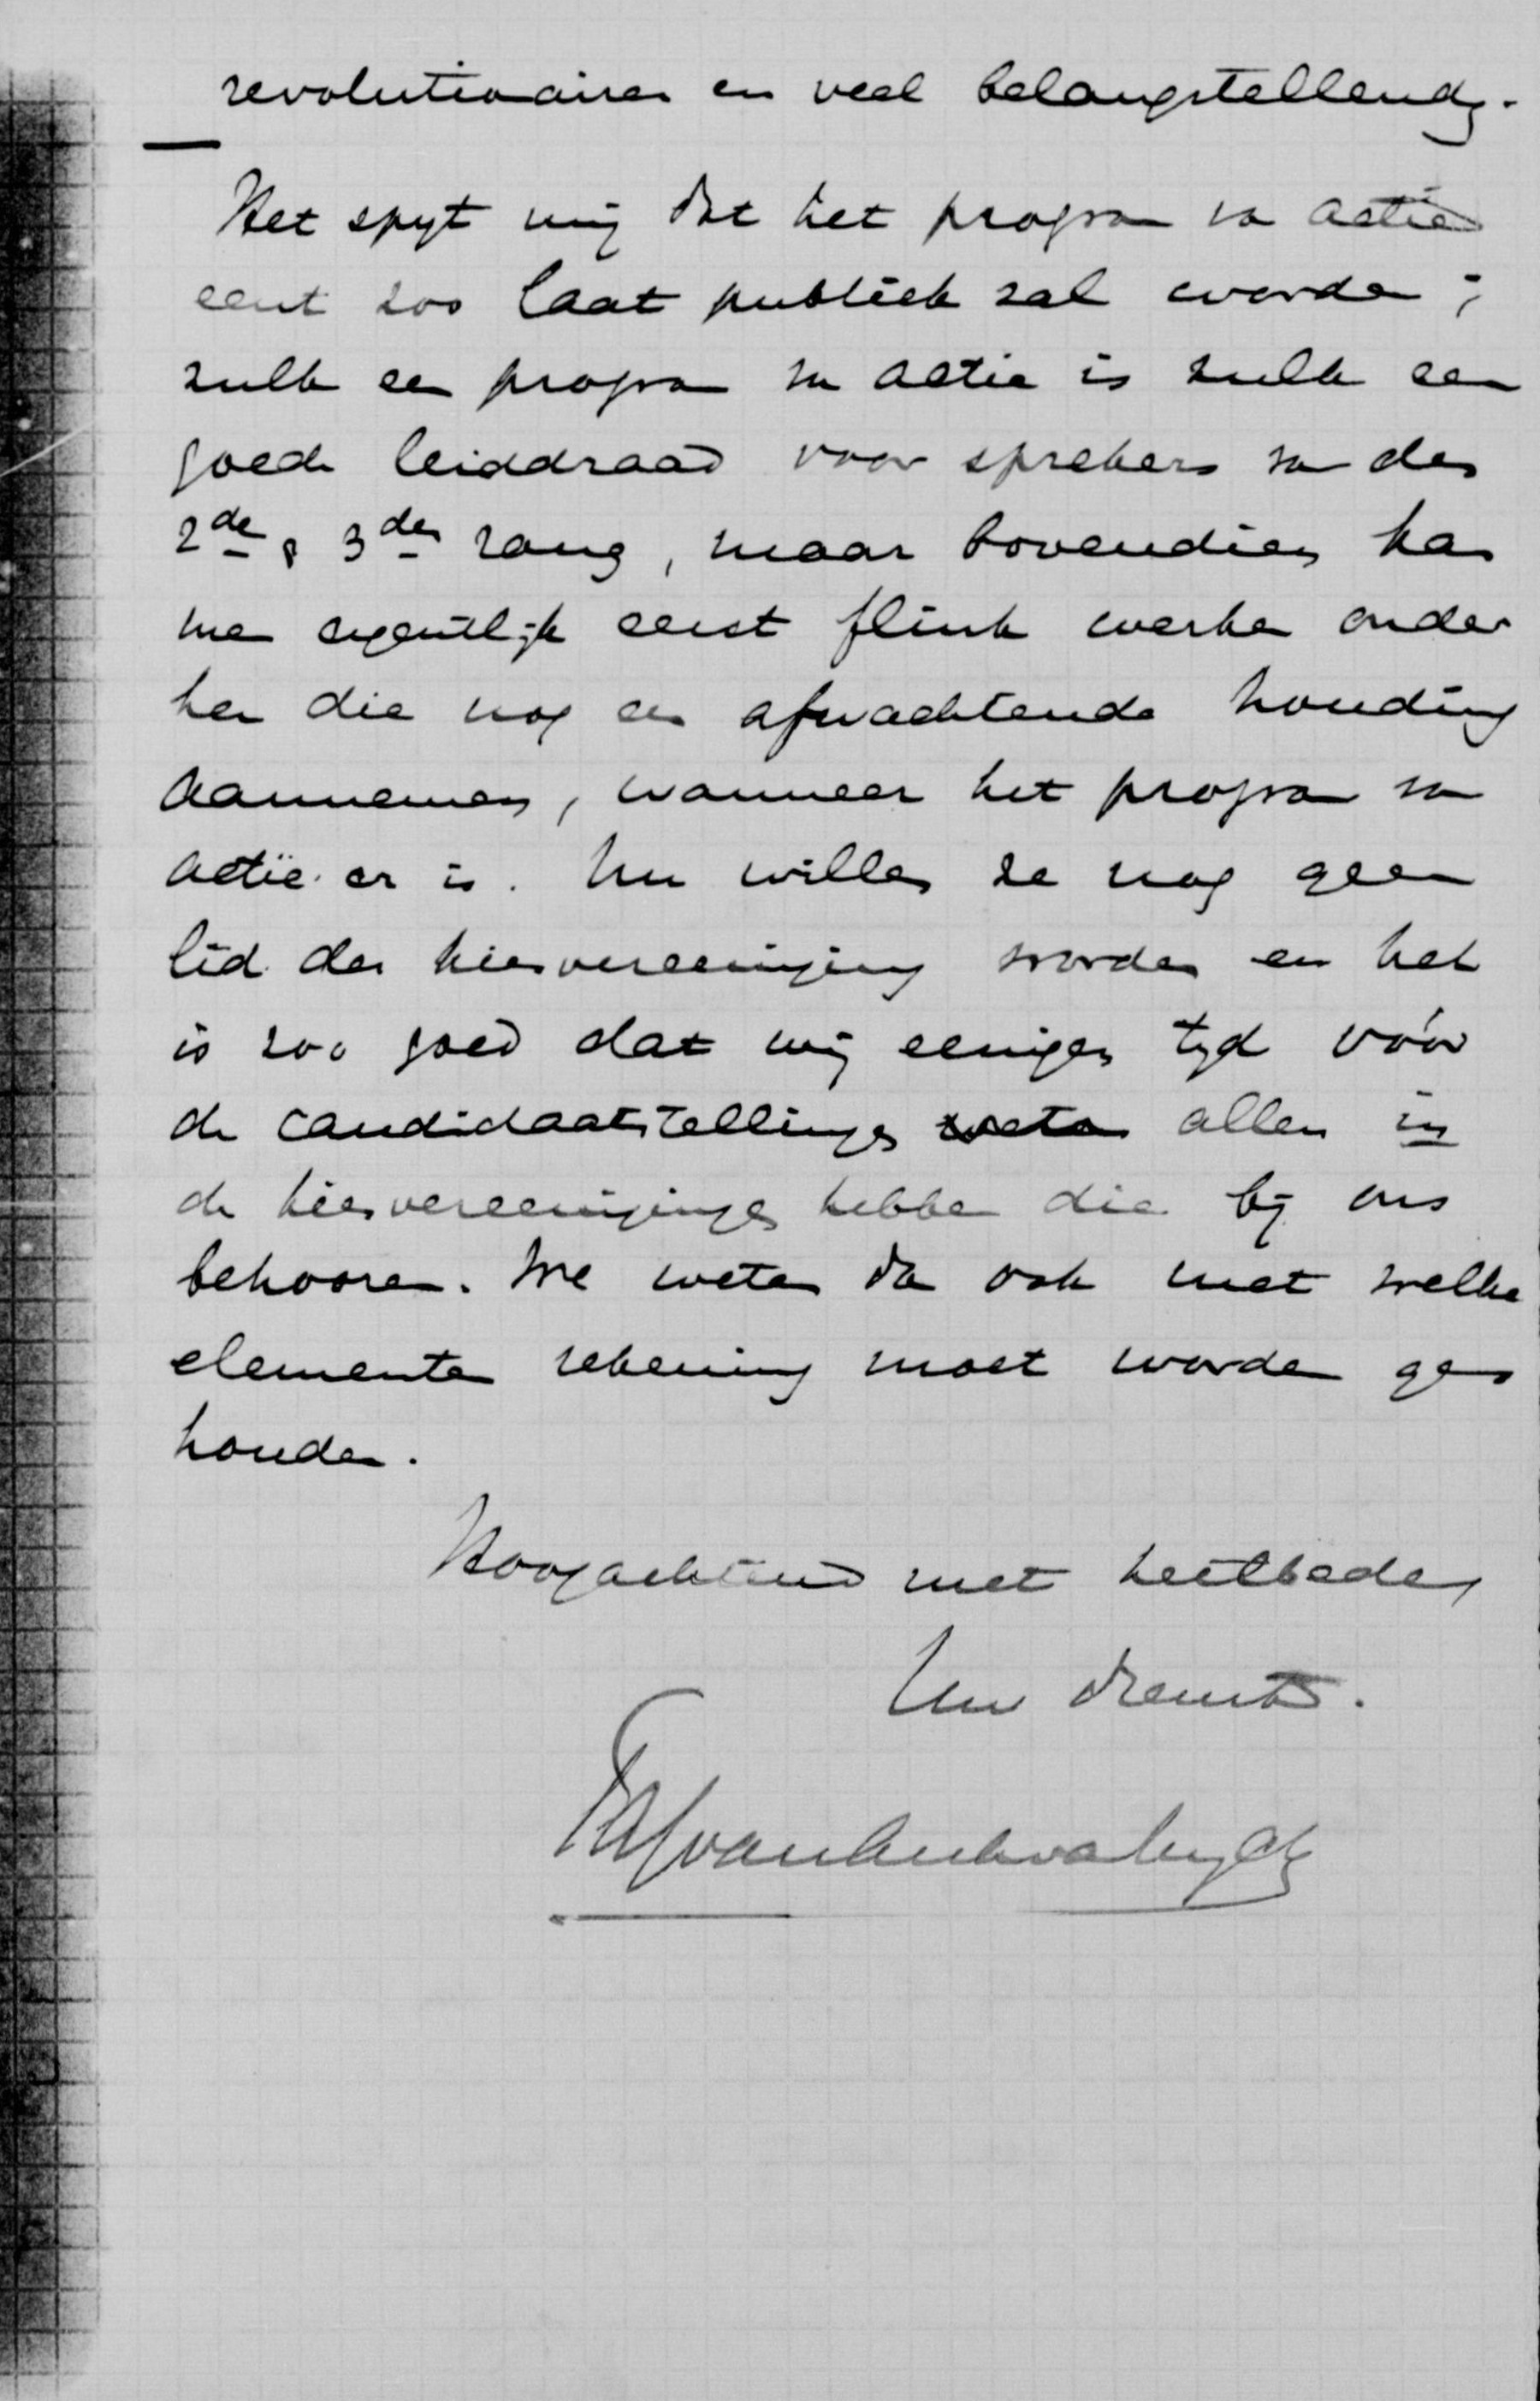 revolutionairen en veel belangstellend.
Het spijt mij dat het program van actie
eerst zoo laat publiek zal worden;
zulk een program van actie is zulk een
goede leiddraad voor sprekers van den
2de & 3den rang, maar bovendien kan
men eigentlijk eerst flink werken onder
hen die nog een afwachtende houding
aannemen, wanneer het program van
actie er is. Nu willen ze nog geen
lid der kiesvereeniging worden en het
is zoo goed dat wij eenigen tijd vóór
de candidaatstellingen weten allen in
de kiesvereenigingen hebben die bij ons
behooren. We weten dan ook met welke
elementen rekening moet worden ge
houden.
Hoogachtend met heilbede,
Uw